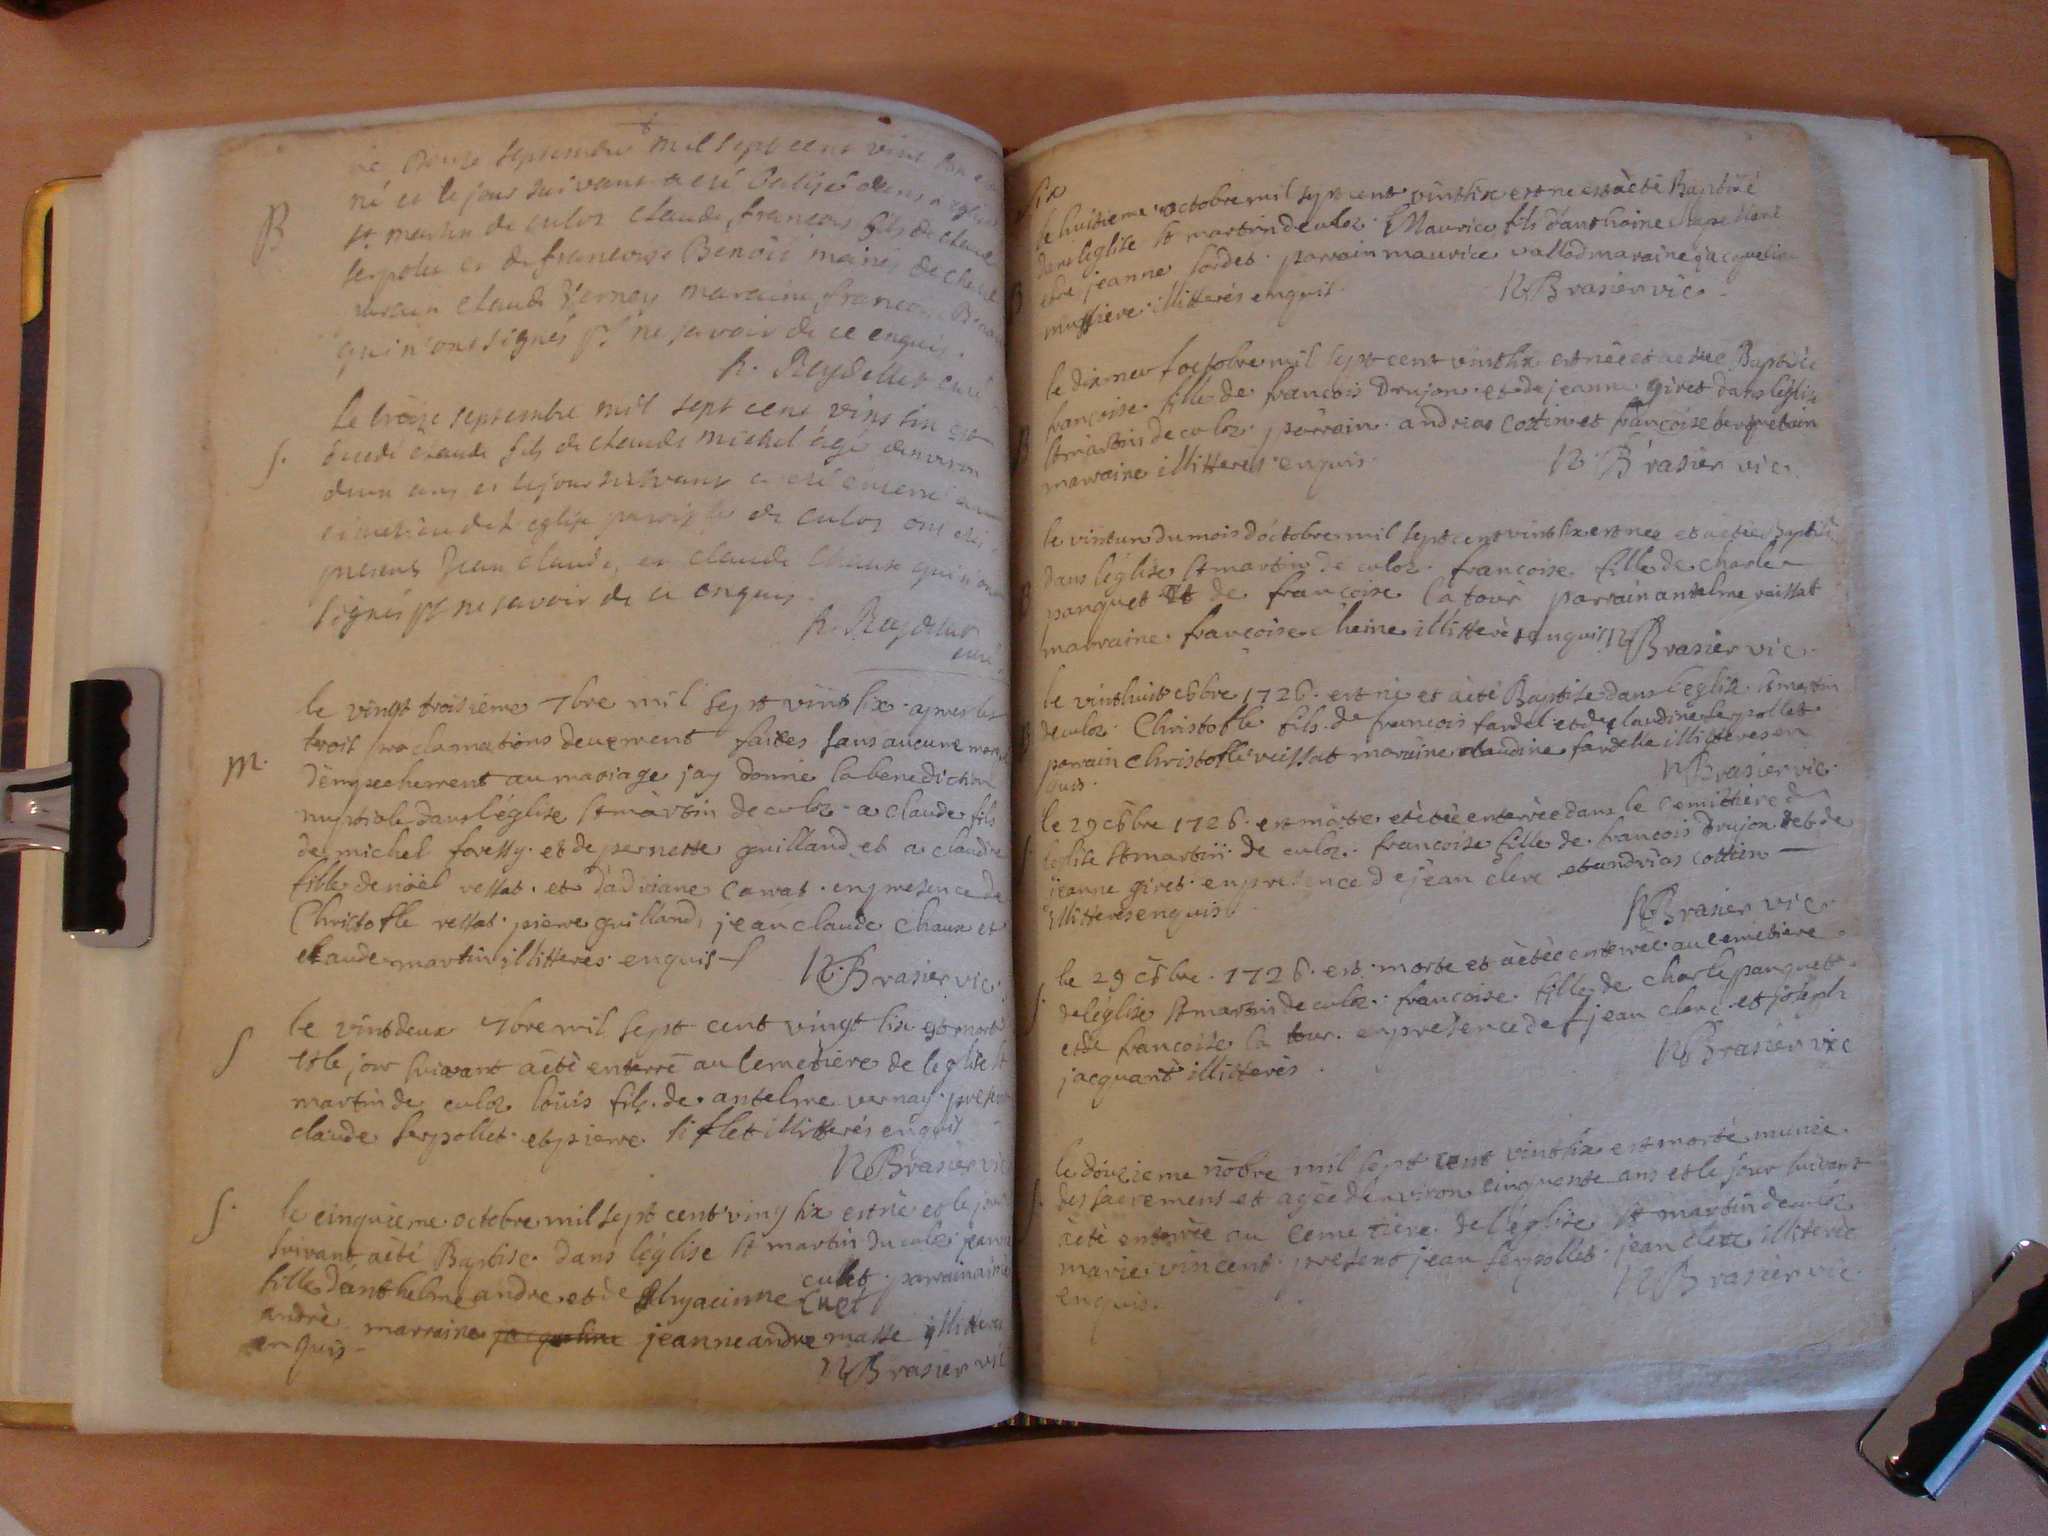 Le douze septembre mil sept cent vint six est
né et le jour suivant a esté batisé dans l'eglise
B
st martin de culoz claude françois fils de claude
serpolet et de françoise Benoit mariés de
parain claude Verney maraine françoise
qui n'ont signés pr ne savoir de ce enquis.
R. Reydellet curé
Le treize septembre mil sept cent vint six est
S.
decedé claude fils de claude michel âgé denviron
deux ans et le jour suivant a esté enterré au
cimetiere de l'eglise paroisse de culoz ont été
presens Jean claude, et claude chaux qui n'ont
signés pr ne savoir de ce enquis.
R. Reydellet
curé
le vingt troisieme 7bre mil sept vint six apres les
trois proclamations deuement faites sans aucune
m.
d'empechement au mariage jay donné la benediction
nuptiale dans l'église st martin de culoz a claude fils
de michel foressy et de pernette guilland et a claudine
fille de noël vessat et d'adriane carrat en presence de
Christofle ressat pierre guilland, jean claude chaux et
claude martin illitterés enquis
N. Brasier vic.
S
le vint deux 7bre mil sept cent vingt six est mort
et le jour suivant a eté enterré au cemetière de leglise st
martin de culoz loüis fils de antelme vernay present
claude serpollet et pierre siflet illitterés enquis
N Brasier vic
S.
le cinquieme octobre mil sept cent ving six est née et le jour
suivant a eté Baptise dans l'église st martin du culoz jeanne
fille d'anthelme andre et de hyacinne Cuet culet parrain
andré marraine jacqueline jeanne andre masse illitteres
enquis
N Brasier vic
Six
le huitieme octobre mil sept cent vint six est ne et a eté Baptisé
dans léglise st martin de culoz Maurice fils d'anthoine
B
et de jeanne sordet parrain maurice vallod maraine jacqueline
mussiere illitterés enquis
N Brasier vic
le dixneuf octobre mil sept cent vint six est née et a etée Baptisée
françoise fille de francois Drujon et de jeanne giret dans leglise
B
st martin de culoz parrain andreas cottin et françoise berguetain
marraine illitterés enquis
N. Brasier vic
le vint un du mois d'octobre mil sept cent vint six est nee et a etée Baptisée
dans léglise st martin de culoz francoise fille de charle
B
panquet et de françoise la tour parrain antelme vuissat
marraine françoise cheine illitterés enquis N Brasier vic.
le vint huit 8bre 1726 est né et a eté Baptise dans leglise st martin
B
de culoz Christofle fils de francois fardel et de claudine serpollet
parrain christofle vuissat maraine claudine fardelle illitteres en
quis.
N Brasier vic
le 29 8bre 1726 est morte et a etée enterrée dans le cemittière de
S.
leglise st martin de culoz francoise fille de francois Drujon et de
jeanne giret en presence de jean clerc et andrias cottin
illitteres enquis
N Brasier vic.
le 29 8bre 1726 est morte et a etée enterrée au cemetiere
S.
de léglise st martin de culoz francoise fille de charle panquet
et de francoise la tour en presence de jean clerc et joseph
jacquant illitterés
N Brasier vic
le douzieme nobre mil sept cent vint six est morte munie
des sacremens et agée d'environ cinquente ans et le jour suivant
S.
a eté enterrée au cemetiere de l'église st martin de culoz
marie vincent present jean serpollet jean clerc illiterés
enquis.
N Brasier vic